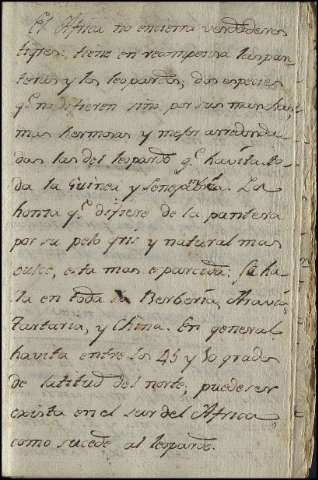 El Africa no encierra verdaderos
tigres: tiene en recompensa las pan-
teras y los leopardos, dos especies
q.e no difieren sino por sus manchas,
mas hermosas y mejor arredonda-
das las del leopardo q.e havita to-
da la Guinea y Senegambia. La
honta q.e difiere de la pantera
por su pelo gris y natural mas
dulce, esta mas esparcida. Se ha-
lla en toda la Berberia, Aravia,
Tartaria, y China. En general
havita entre los 45 y 50 grados
de latitud del norte, puede ser
exista en el sur del Africa
como sucede al leopardo.